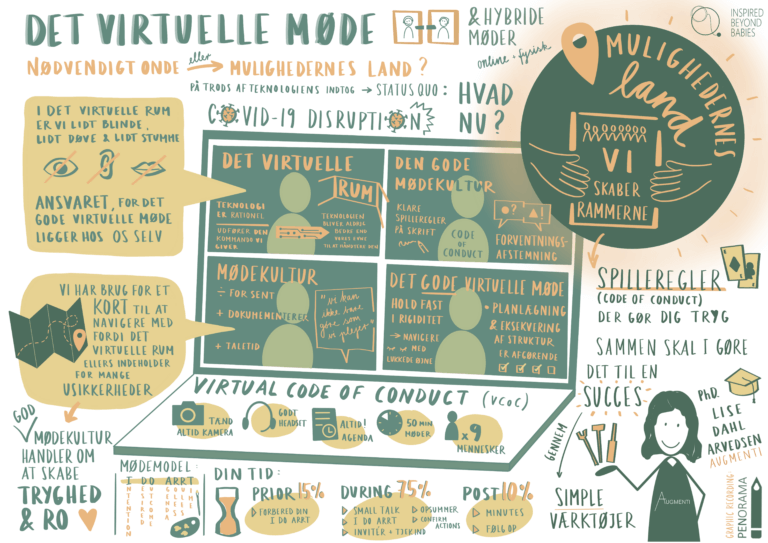 DET VIRTUELLE MØDE
& HYBRIDE
MØDER
online + fysisk
INSPIRED
BEYOND
BABIES
NØDVENDIGT ONDE eller MULIGHEDERNES LAND?
PÅ TRODS AF TEKNOLOGIENS INDTOG → STATUS QUO:
HVAD
NU?
COVID-19 DISRUPTION
MULIGHEDERNES
land
VI
SKABER
RAMMERNE
I DET VIRTUELLE RUM
ER VI LIDT BLINDE,
LIDT DØVE & LIDT STUMME
ANSVARET, FOR DET
GODE VIRTUELLE MØDE
LIGGER HOS OS SELV
DET VIRTUELLE
RUM
TEKNOLOGI
ER RATIONEL
UDFØRER DEN
KOMMANDO VI
GIVER
TEKNOLOGIEN
BLIVER ALDRIG
BEDRE END
VORES EVNE
TIL AT HÅNDTERE DEN
DEN GODE
MØDEKULTUR
KLARE
SPILLEREGLER
PÅ SKRIFT
CODE
OF
CONDUCT
?
!
FORVENTNINGS-
AFSTEMNING
MØDEKULTUR
÷ FOR SENT
+ DOKUMENTEREZ
+ TALETID
"vi kan
ikke bare
gøre som
vi plejer"
DET GODE VIRTUELLE MØDE
HOLD FAST
I RIGIDITET
→ NAVIGERE
MED
LUKKEDE ØJNE
• PLANLÆGNING
& EKSEKVERING
AF STRUKTUR
ER AFGØRENDE
VI HAR BRUG FOR ET
KORT TIL AT
NAVIGERE MED
FORDI DET
VIRTUELLE RUM
ELLERS INDEHOLDER
FOR MANGE
USIKKERHEDER
SPILLEREGLER
(CODE OF CONDUCT)
DER GØR DIG TRYG
SAMMEN SKAL I GØRE
DET TIL EN
SUCCES
GENNEM
SIMPLE
VÆRKTØJER
AUGMENTI
PhD.
LISE
DAHL
ARVEDSEN
AUGMENTI
GRAPHIC RECORDING:
PENORAMA
VIRTUAL CODE OF CONDUCT (VCOC)
TÆND
ALTID KAMERA
GODT
HEADSET
ALTID!
AGENDA
50 MIN
MØDER
x 9
MENNESKER
GOD
MØDEKULTUR
HANDLER OM
AT SKABE
TRYGHED
& RO
MØDEMODEL:
I DO ARRT
INTENTION
DIN TID:
PRIOR 15%
FORBERED DIN
I DO ARRT
DURING 75%
SMALL TALK
I DO ARRT
INVITÉR + TJEK IND
OPSUMMER
CONFIRM
ACTIONS
POST 10%
MINUTES
FØLG OP